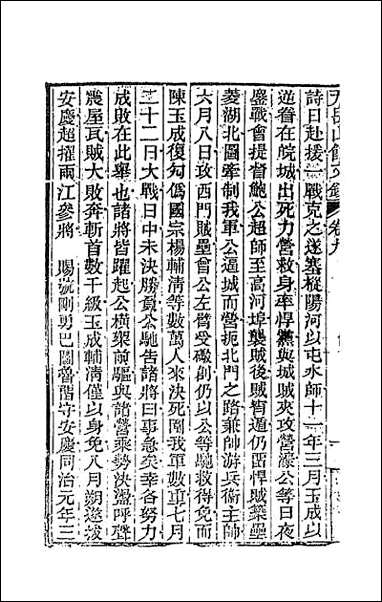 詩曰赴援一戰克之遂塞樅陽河以屯水師十一年三月玉成以
逆眷在皖城出死力營救身率悍黨與城賊夾攻營濠公等日夜
鏖戰會提督鮑公超師至高河埠襲賊後賊宵遁仍留悍賊築壘
菱湖北圖牽制我軍公逼城而營扼北門之路兼帥游兵衛主帥
六月八日攻西門賊壘曾公左臂受礮創仍以公等馳救得免而
陳玉成復勾偽國宗楊輔清等數萬人來決死鬬我軍數重七月
二十二日大戰日中未決勝負公馳告諸將曰事急矣幸各努力
成敗在此舉也諸將皆躍起公橫槊前驅與諸營乘勢決盪呼聲
震屋瓦賊大敗奔斬首數千級玉成輔清僅以身免八月朔遂拔
安慶超擢兩江參將 賜號剛勇巴圖魯偕守安慶同治元年三